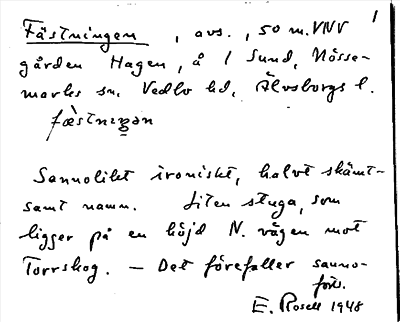 1
Fästningen, avs., 50 m. VNV
gården Hagen, å 1 Sund, Nösse-
marks sn. Vedbo hd, Älvsborgs l.
fæ̀stnıŋən
Sannolikt ironiskt, halvt skämt-
samt namn. Liten stuga, som
ligger på en höjd N. vägen mot
Torrskog. — Det förefaller sanno-
fört.
E. Rosell 1948